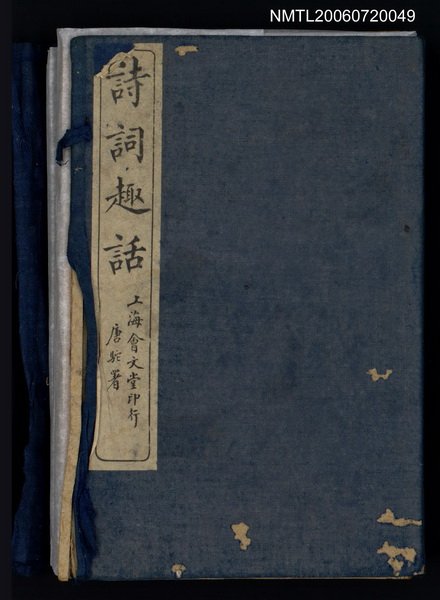 NMTL20060720049
詩詞趣話
上海會文堂印行
唐駝署